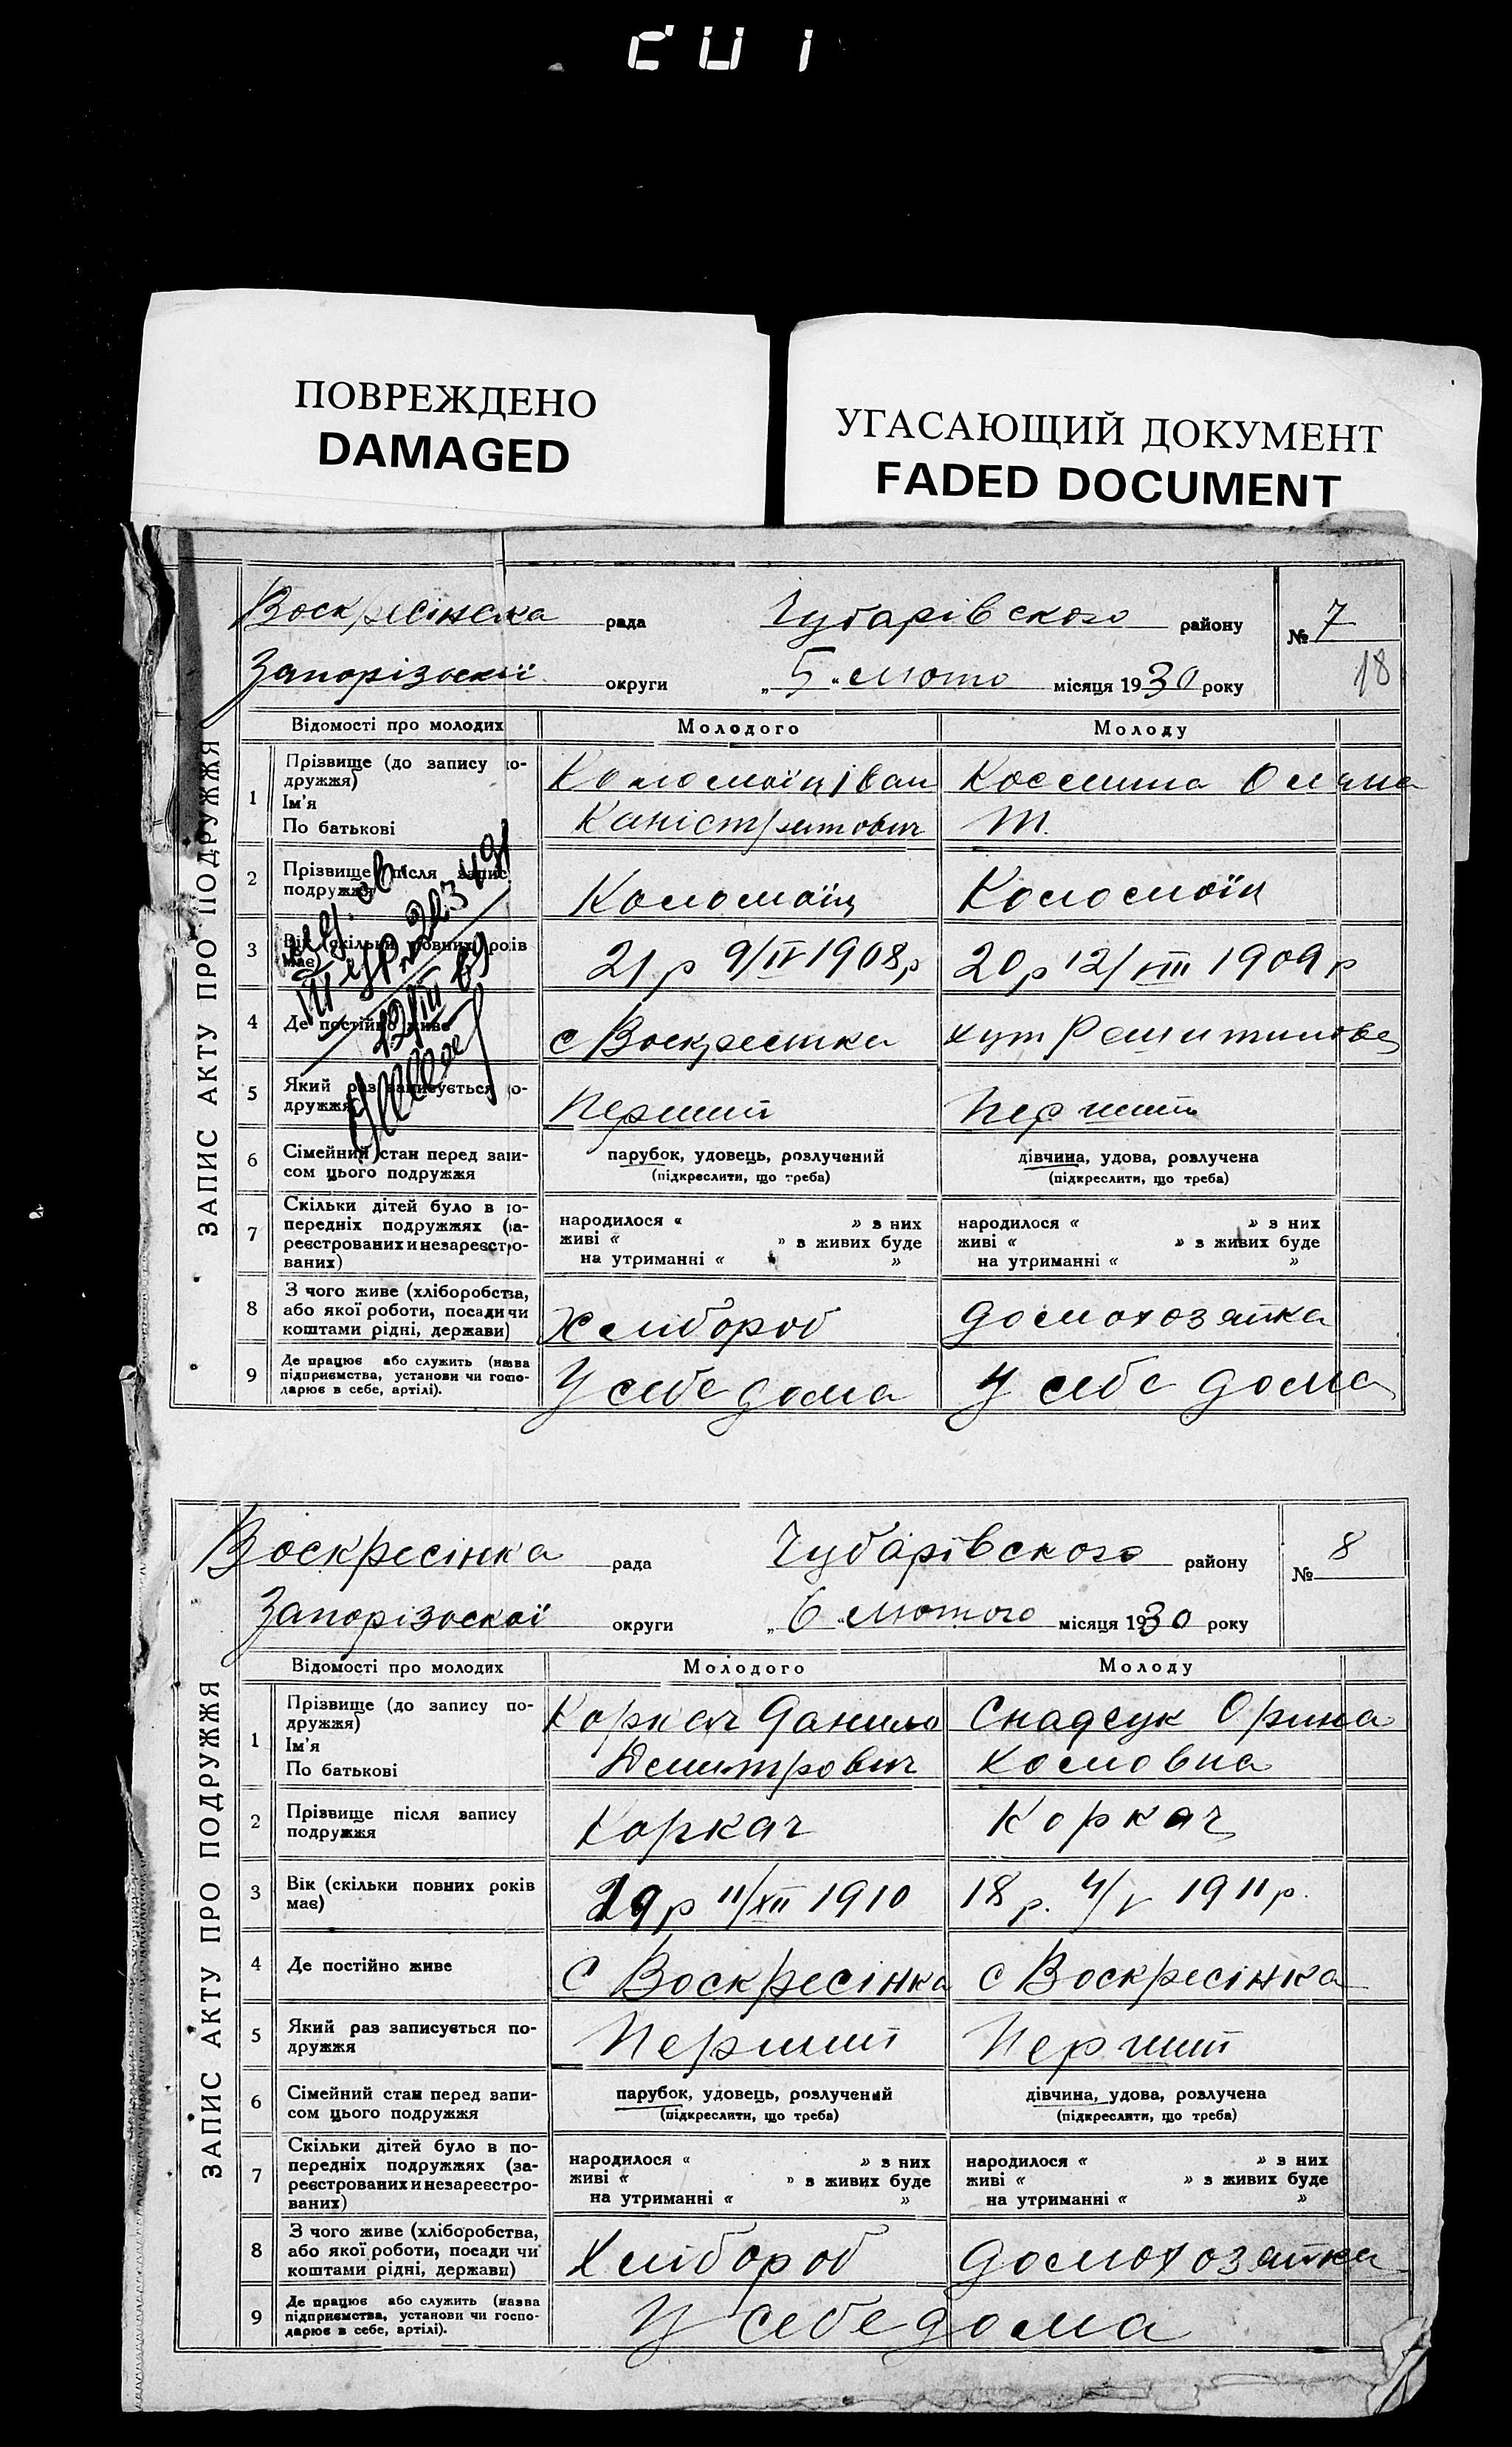 ПОВРЕЖДЕНО
DAMAGED
УГАСАЮЩИЙ ДОКУМЕНТ
FADED DOCUMENT
ЗАПИС АКТУ ПРО ПОДРУЖЖЯ
Воскресінска рада Чубарівского району № 7
Запорізької округи „ 5 " лютого місяця 1930 року 18
Відомості про молодих Молодого Молоду
1 Прізвище (до запису подружжя) Ім'я По батькові
Коломоїц Іван
Каністратович
Т.
2 Прізвище після запису подружжя
Коломоїц Коломоїц
3 Вік (скільки повних років має)
21 р 9/IV 1908 р 20 р 12/VIII 1909 р
4 Де постійно живе
с Воскресінка хут
5 Який раз записується подружжя
Перший Перший
6 Сімейний стан перед записом цього подружжя
парубок, удовець, розлучений дівчина, удова, розлучена
(підкреслити, що треба) (підкреслити, що треба)
7 Скільки дітей було в попередніх подружжях (зареєстрованих и незареєстрованих)
народилося « » з них народилося « » з них
живі « » з живих буде живі « » з живих буде
на утриманні « » на утриманні « »
8 З чого живе (хліборобства, або якої роботи, посади чи коштами рідні, держави)
Хлібороб домохозяйка
9 Де працює або служить (назва підприємства, установи чи господарює в себе, артілі).
У себе дома У себе дома
ЗАПИС АКТУ ПРО ПОДРУЖЖЯ
Воскресінка рада Чубарівского району № 8
Запорізької округи „ 6 " лютого місяця 1930 року
Відомості про молодих Молодого Молоду
1 Прізвище (до запису подружжя) Ім'я По батькові
Коркач Данило Снадсук Орина
Демитрович Космовна
2 Прізвище після запису подружжя
Коркач Коркач
3 Вік (скільки повних років має)
19 р 11/XII 1910 18 р. 4/V 1911 р.
4 Де постійно живе
с Воскресінка с Воскресінка
5 Який раз записується подружжя
Перший Перший
6 Сімейний стан перед записом цього подружжя
парубок, удовець, розлучений дівчина, удова, розлучена
(підкреслити, що треба) (підкреслити, що треба)
7 Скільки дітей було в попередніх подружжях (зареєстрованих и незареєстрованих)
народилося « » з них народилося « » з них
живі « » з живих буде живі « » з живих буде
на утриманні « » на утриманні « »
8 З чого живе (хліборобства, або якої роботи, посади чи коштами рідні, держави)
Хлібороб домохозяйка
9 Де працює або служить (назва підприємства, установи чи господарює в себе, артілі).
У себе дома